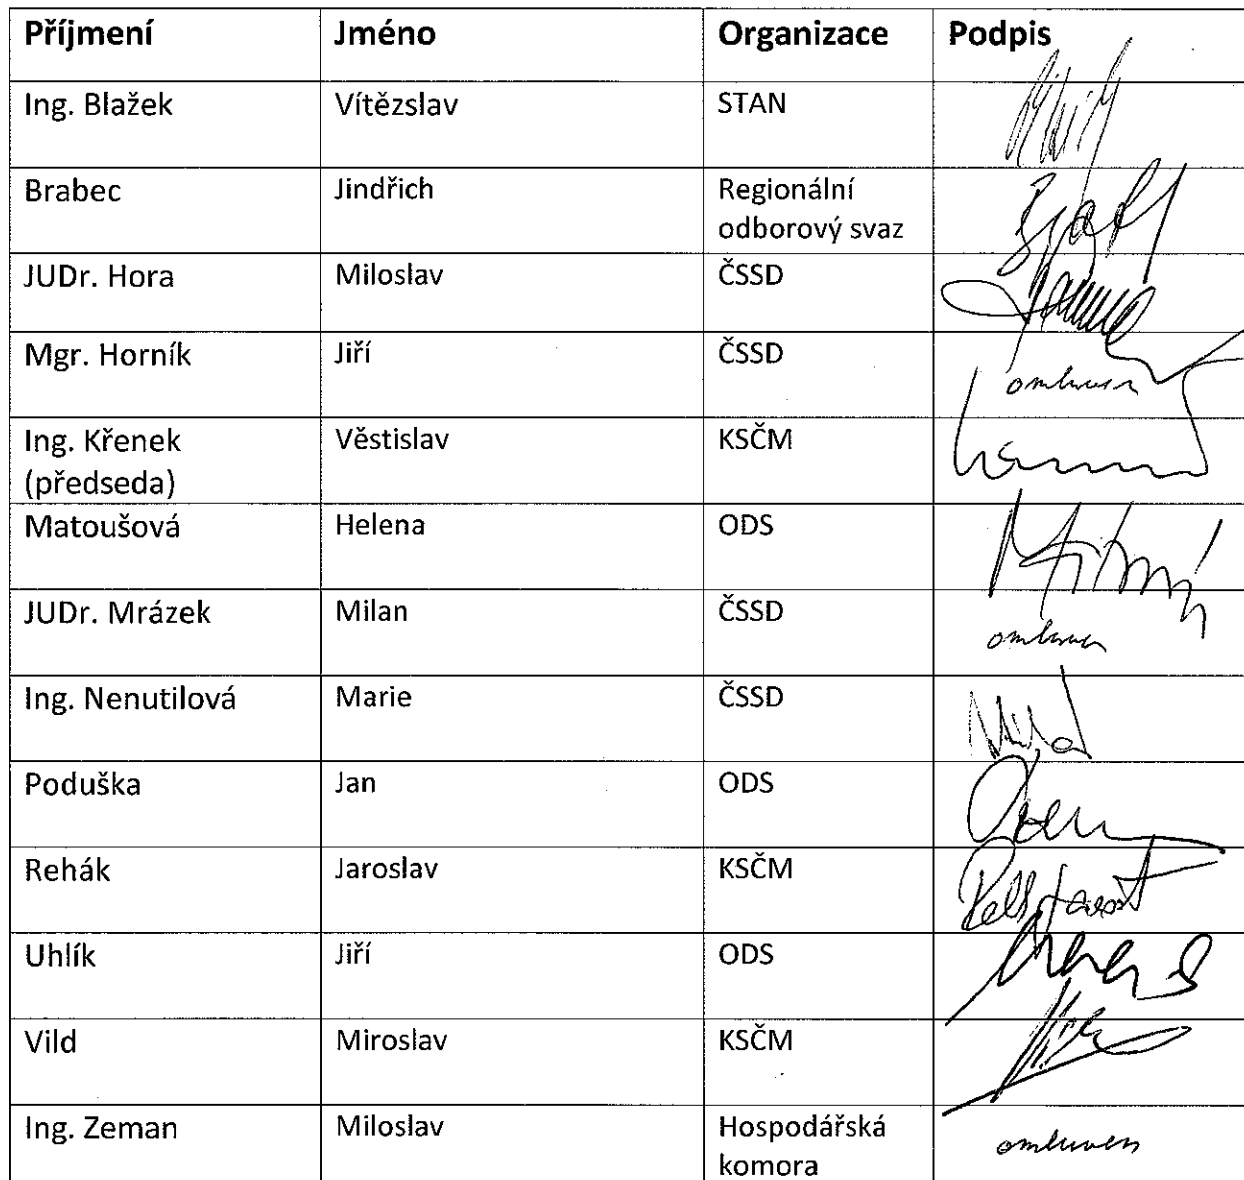 Příjmení Jméno Organizace Podpis
Ing. Blažek Vítězslav STAN
Brabec Jindřich Regionální
odborový svaz
JUDr. Hora Miloslav ČSSD
Mgr. Horník Jiří ČSSD omluven
Ing. Křenek Věstislav KSČM
(předseda)
Matoušová Helena ODS
JUDr. Mrázek Milan ČSSD omluven
Ing. Nenutilová Marie ČSSD
Poduška Jan ODS
Rehák Jaroslav KSČM
Uhlík Jiří ODS
Vild Miroslav KSČM
Ing. Zeman Miloslav Hospodářská omluven
komora